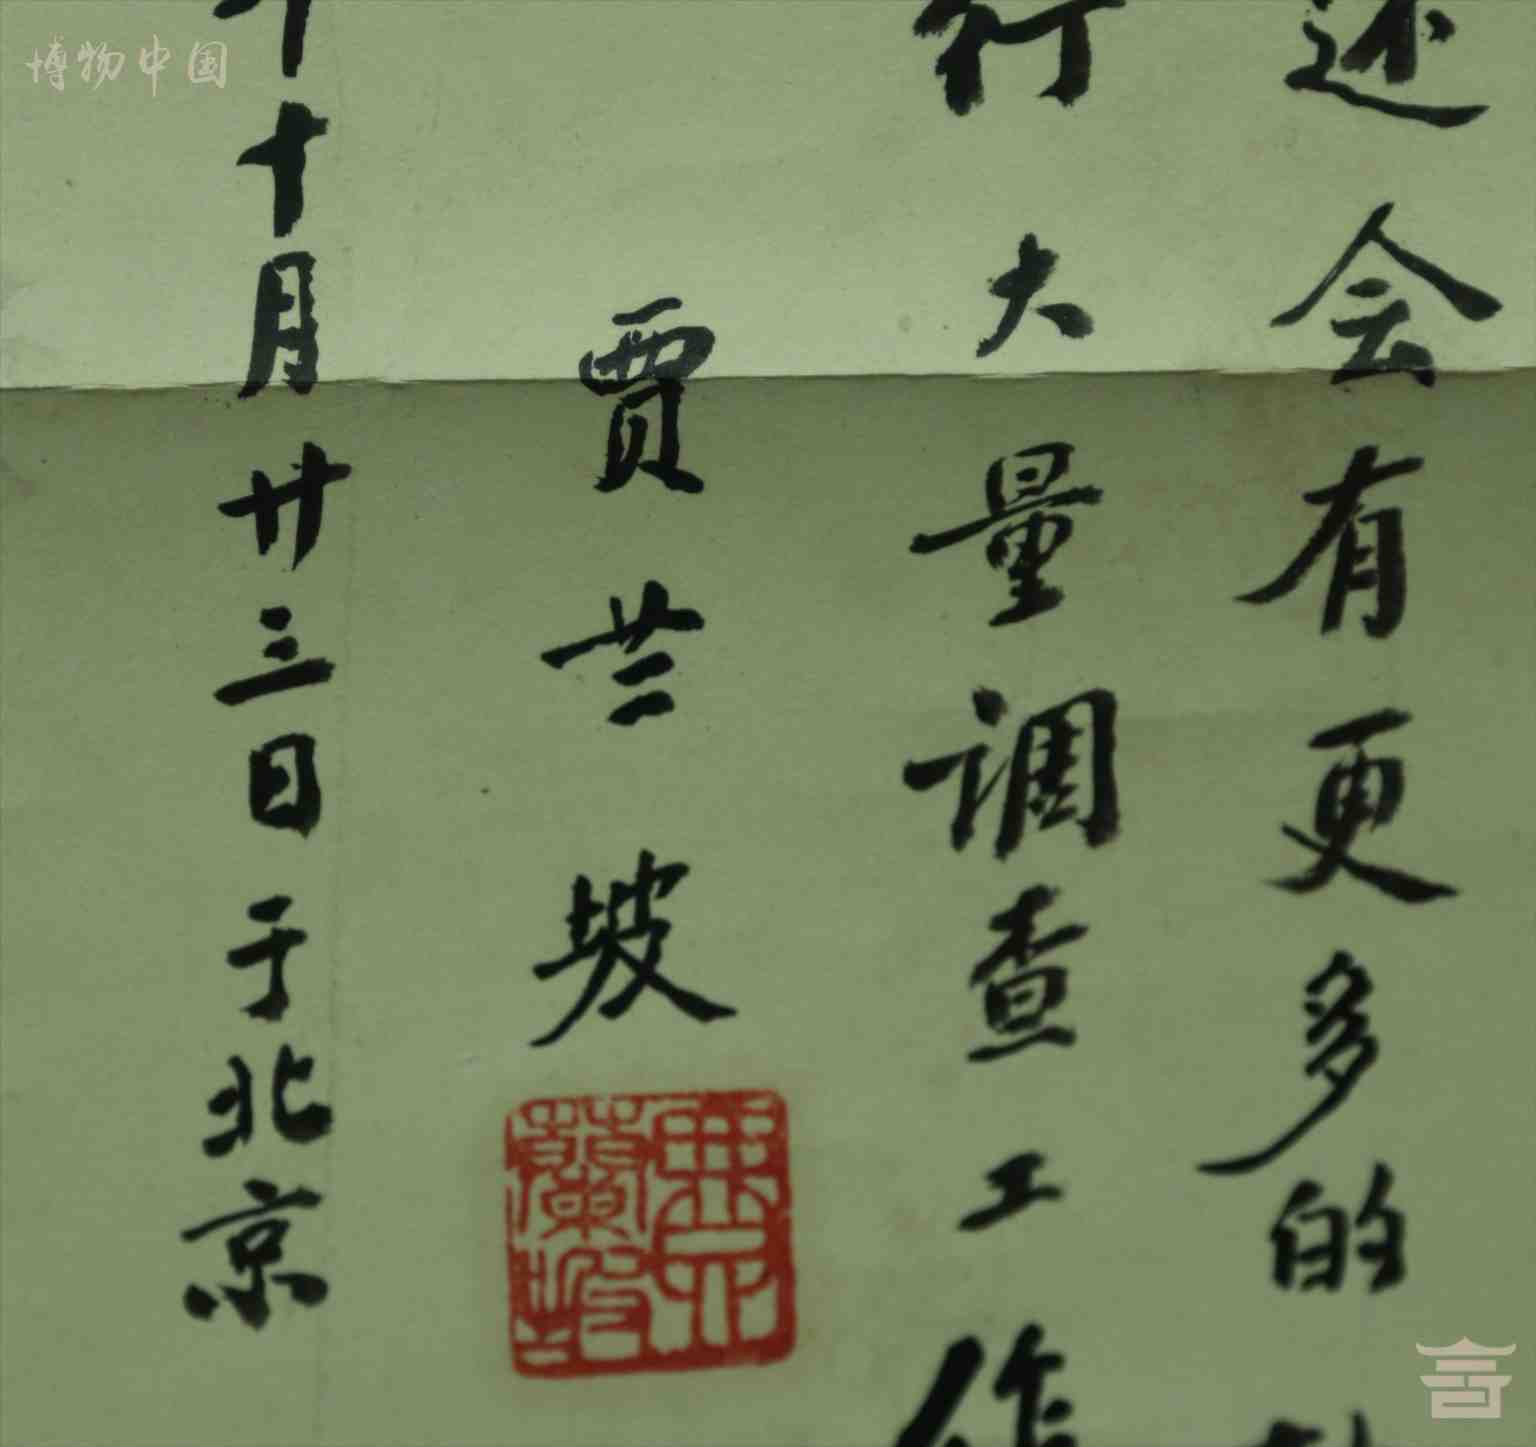 还会有更多的
行大量调查工作
贾芸坡
年十月廿三日于北京
博物中国